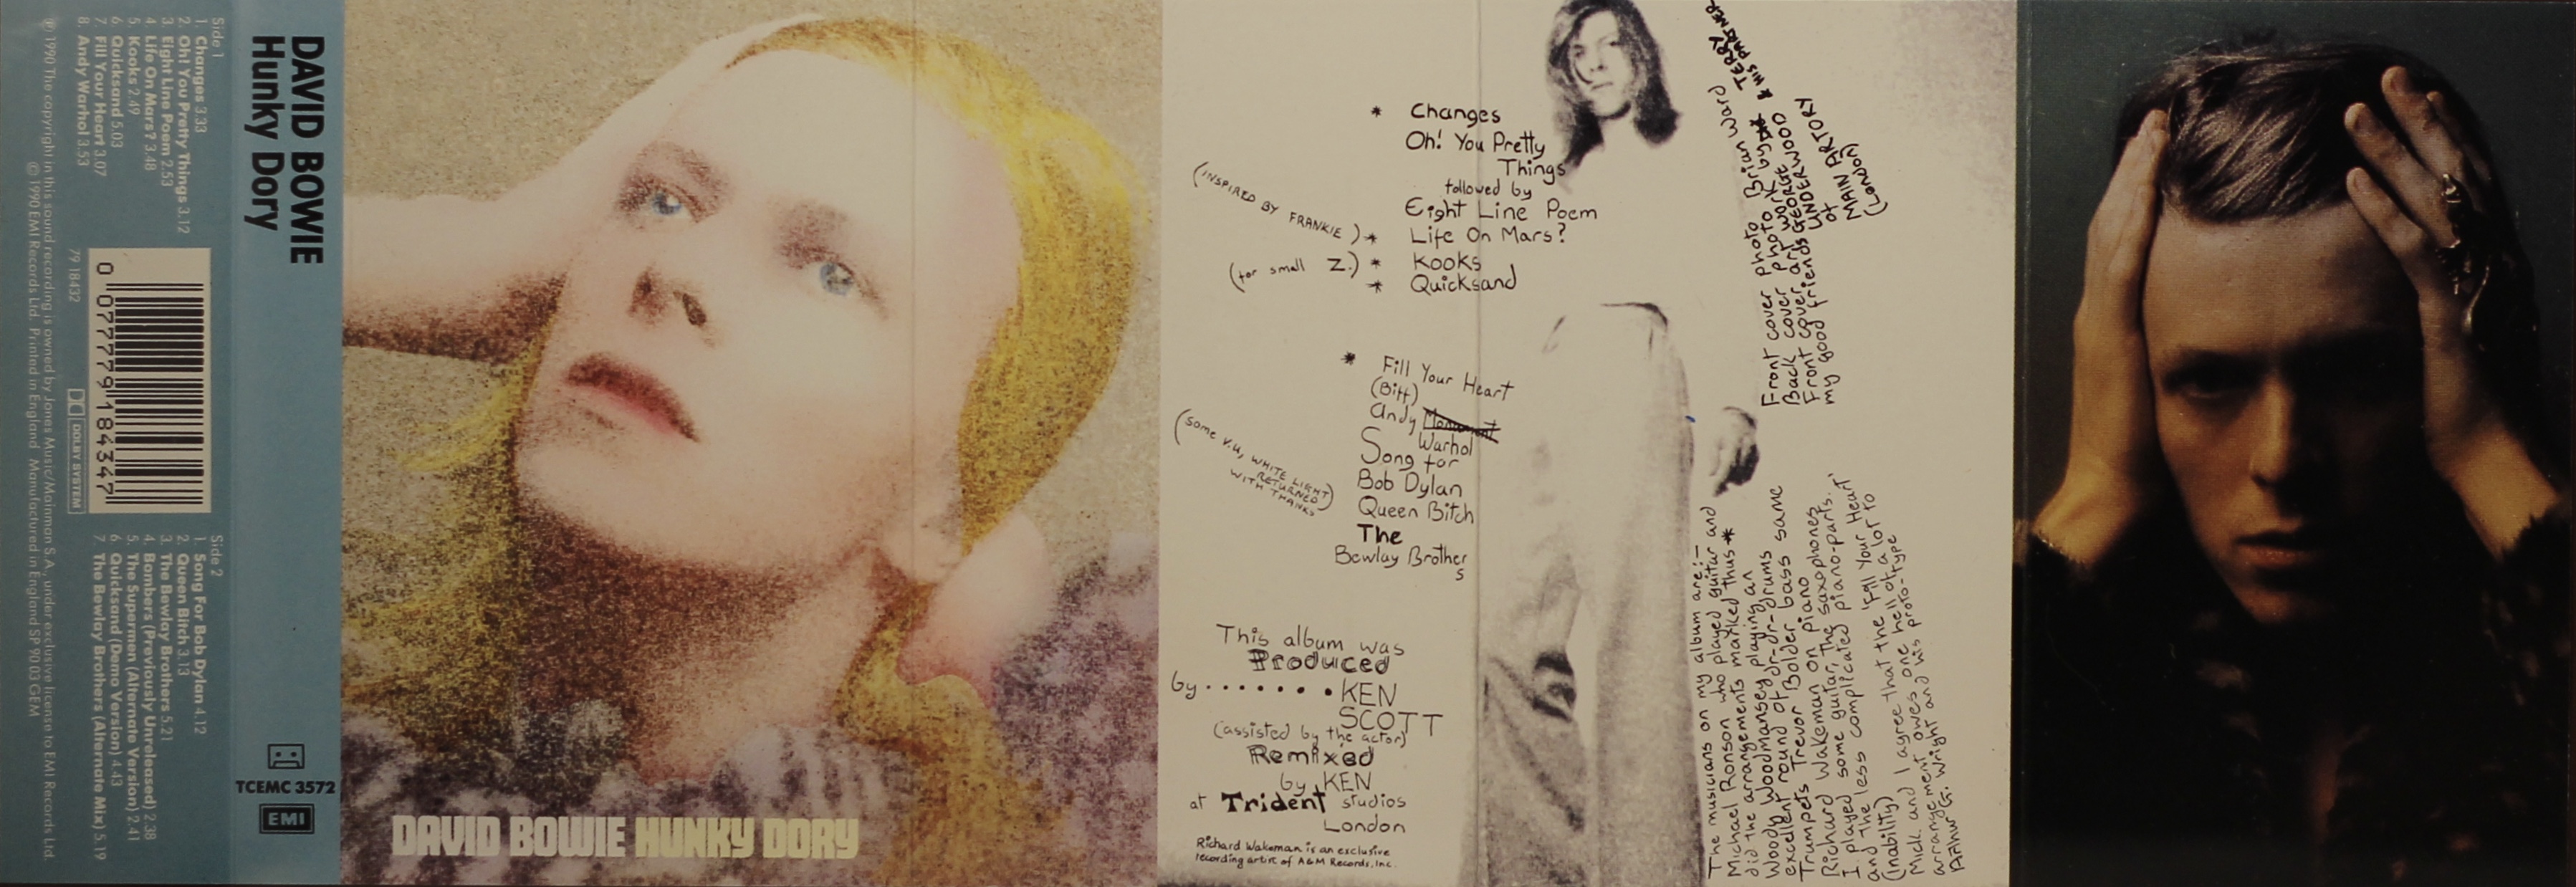 Side 1
1 Changes 3.33
2. Oh! You Pretty Things 3.12
3. Eight Line Poem 2.53
4 Life On Mars? 3.48
5 Kooks 2.49
6 Quicksand 5.03
7 Fill Your Heart 3.07
8. Andy Warhol 3.53
℗ 1990 The copyright in this sound recording is owned by Jones Music/Mainman S.A., under exclusive license to EMI Records Ltd.
© 1990 EMI Records Ltd. Printed in England Manufactured in England SP 90 03 GEM
79 18432
0 077779 184347
DOLBY SYSTEM
Side 2
1. Song For Bob Dylan 4.12
2. Queen Bitch 3.13
3. The Bewlay Brothers 5.21
4. Bombers (Previously Unreleased) 2.38
5. The Supermen (Alternate Version) 2.41
6 Quicksand (Demo Version) 4.43
7 The Bewlay Brothers (Alternate Mix) 5.19
DAVID BOWIE
Hunky Dory
TCEMC 3572
EMI
DAVID BOWIE HUNKY DORY
* Changes
Oh! You Pretty
Things
followed by
Eight Line Poem
(INSPIRED BY FRANKIE) * Life On Mars?
(for small Z.) * Kooks
* Quicksand
* Fill Your Heart
(Biff)
Andy
Warhol
Song for
Bob Dylan
(Some V.U, WHITE LIGHT
RETURNED
WITH THANKS)
Queen Bitch
The
Bewlay Brother
s
This album was
Produced
by ....... KEN
SCOTT
(assisted by the actor)
Remixed
by KEN
at Trident studios
London
Richard Wakeman is an exclusive
recording artist of A&M Records, Inc.
Front cover photo Brian Ward
Back cover photo by
Front cover art work TERRY & HIS PARTNER
my good friends GEORGE UNDERWOOD
of
MAIN ARTORY
(London)
The musicians on my album are:-
Michael Ronson who played guitar and
did the arrangements marked thus *
Woody Woodmansey playing an
excellent round of dr-dr-drums
Trumpets Trevor Bolder bass same
Richard Wakeman on piano
I played some guitar, the saxophones
and the less complicated piano-parts.
(inability)
Mick and I agree that the 'Fill Your Heart'
arrangement owes one hell of a lot to
Arthur G. Wright and his proto-type